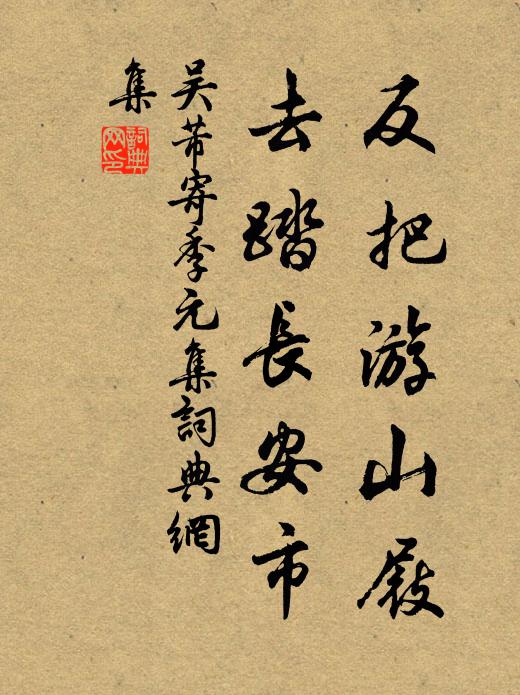 反把游山屐
去踏長安市
吴芾寄季元集詞典網
集
詞典网印